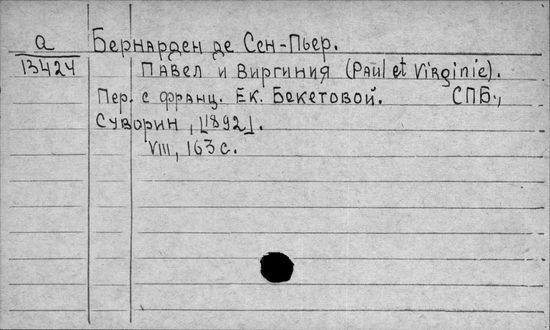 а Бернарден де Сен-Пьер.
13424 Павел и Виргиния (Paul et Virginie).
Пер. с франц. Ек. Бекетовой. СПБ.,
Суворин, [1892].
VIII, 163 с.